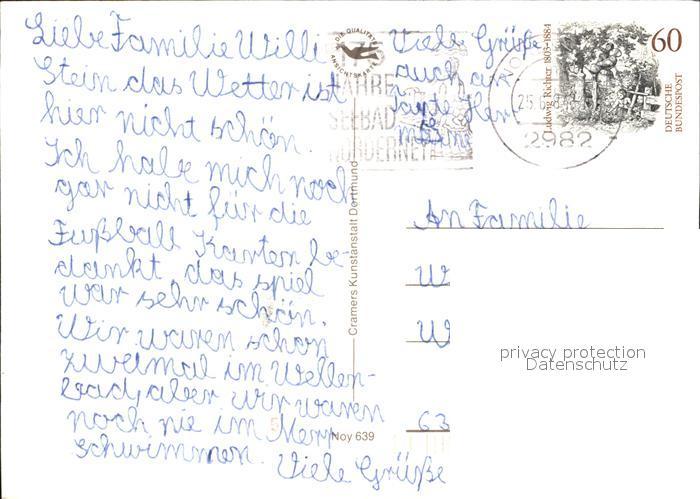 Liebe Familie Willi
Stein das Wetter ist
hier nicht schön.
Ich habe mich noch
gar nicht für die
Fußball Karten be-
dankt, das spiel
war sehr schön.
Wir waren schon
zweimal im Wellen-
bad, aber wir waren
noch nie im Merr
schwimmen. Viele Grüße
Viele Grüße
auch an
Tante Her-
mine
DIE QUALITÄTS
ANSICHTSKARTE
JAHRE
SEEBAD
NORDERNEY
25.6.8
2982
Ludwig Richter 1803-1884
60
DEUTSCHE
BUNDESPOST
Cramers Kunstanstalt Dortmund
An Familie
W
W
63
privacy protection
Datenschutz
Noy 639